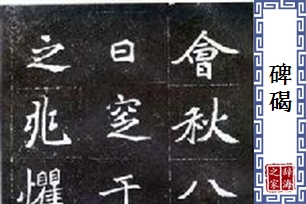 會秋八
日窆于
之兆懼
碑碣
辭海
之家